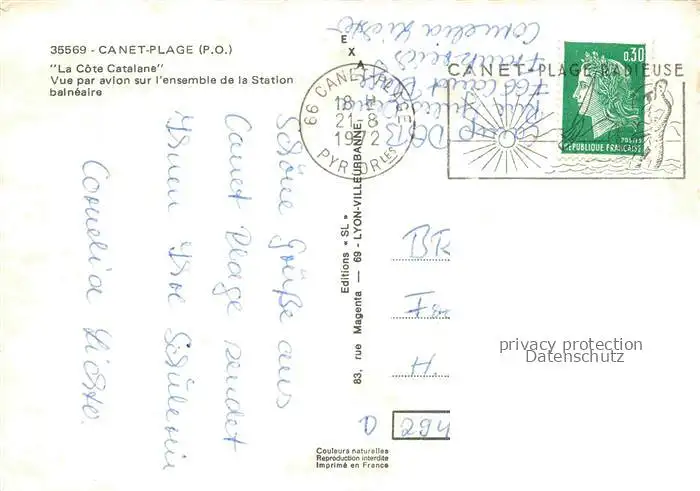 35569 - CANET-PLAGE (P.O.)
"La Côte Catalane"
Vue par avion sur l'ensemble de la Station
balnéaire
EXA
66 CANET-PLAGE
18 H
21-8
1972
PYR. ORLES
CANET-PLAGE RADIEUSE
0,30
POSTES
REPUBLIQUE FRANÇAISE
Cornelia
Frankreich
66 Canet Plage
Rue
Camp
Schöne Grüße aus
Canet Plage sendet
Ihnen Ihre Schülerin
Cornelia
Editions « SL »
83, rue Magenta — 69 - LYON-VILLEURBANNE
BR
H.
D 294
privacy protection
Datenschutz
Couleurs naturelles
Reproduction interdite
Imprimé en France